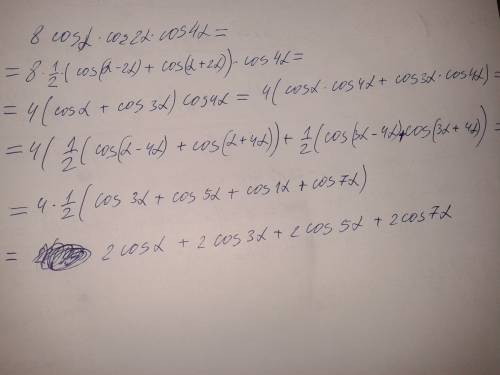 8 cosα · cos2α · cos4α =
= 8 · 1/2 · (cos(α-2α) + cos(α+2α)) · cos4α =
= 4(cosα + cos3α) cos4α = 4(cosα · cos4α + cos3α · cos4α) =
= 4(1/2(cos(α-4α) + cos(α+4α)) + 1/2(cos(3α-4α)+cos(3α+4α)) =
= 4 · 1/2 (cos 3α + cos 5α + cos 1α + cos 7α)
= 2cosα + 2cos3α + 2cos5α + 2cos7α